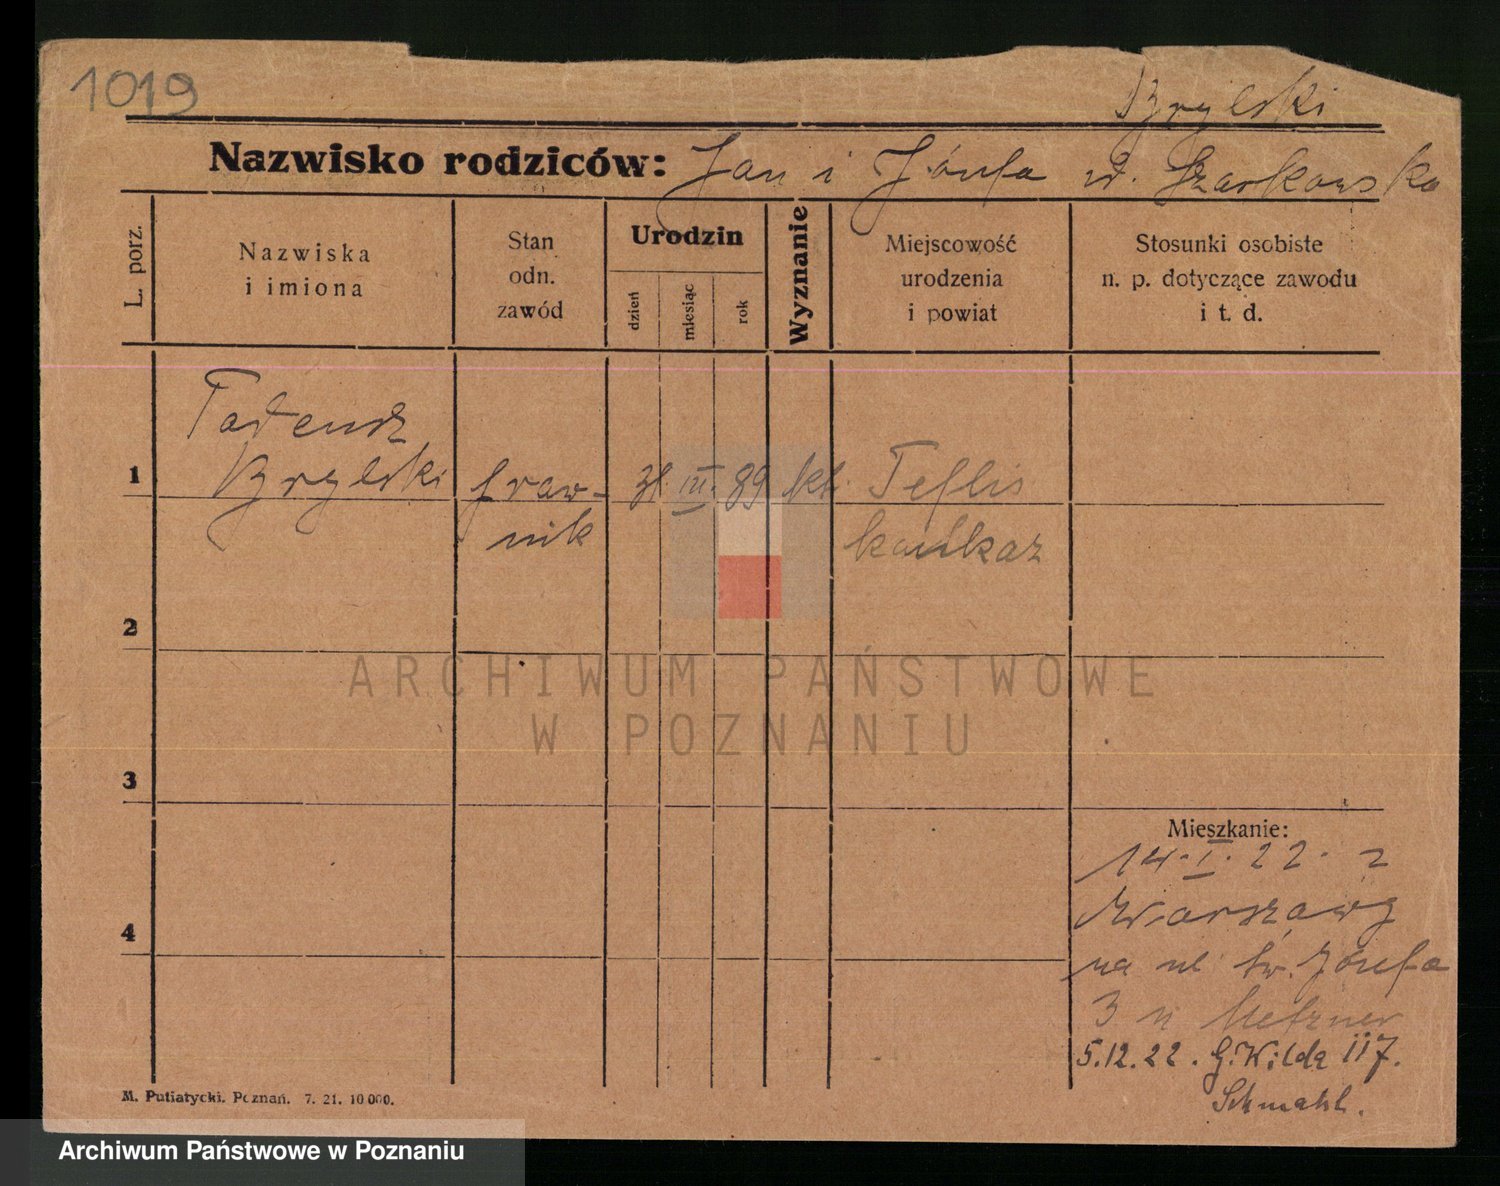 1019
Brylski
Nazwisko rodziców: Jan i Józefa z d. Szarkowska
L. porz.
Nazwiska
i imiona
Stan
odn.
zawód
Urodzin
dzień
miesiąc
rok
Wyznanie
Miejscowość
urodzenia
i powiat
Stosunki osobiste
n. p. dotyczące zawodu
i t. d.
Tadeusz
1 Brylski praw- 31. III. 89 kt. Teflis
nik kaukaz
2
ARCHIWUM PAŃSTWOWE
W POZNANIU
3
Mieszkanie:
14. I. 22. z
Warszawy
4
na ul. św. Józefa
3 u Metzner
5.12.22. G. Wilda 117.
Schmahl.
M. Putiatycki. Poznań. 7. 21. 10 000.
Archiwum Państwowe w Poznaniu